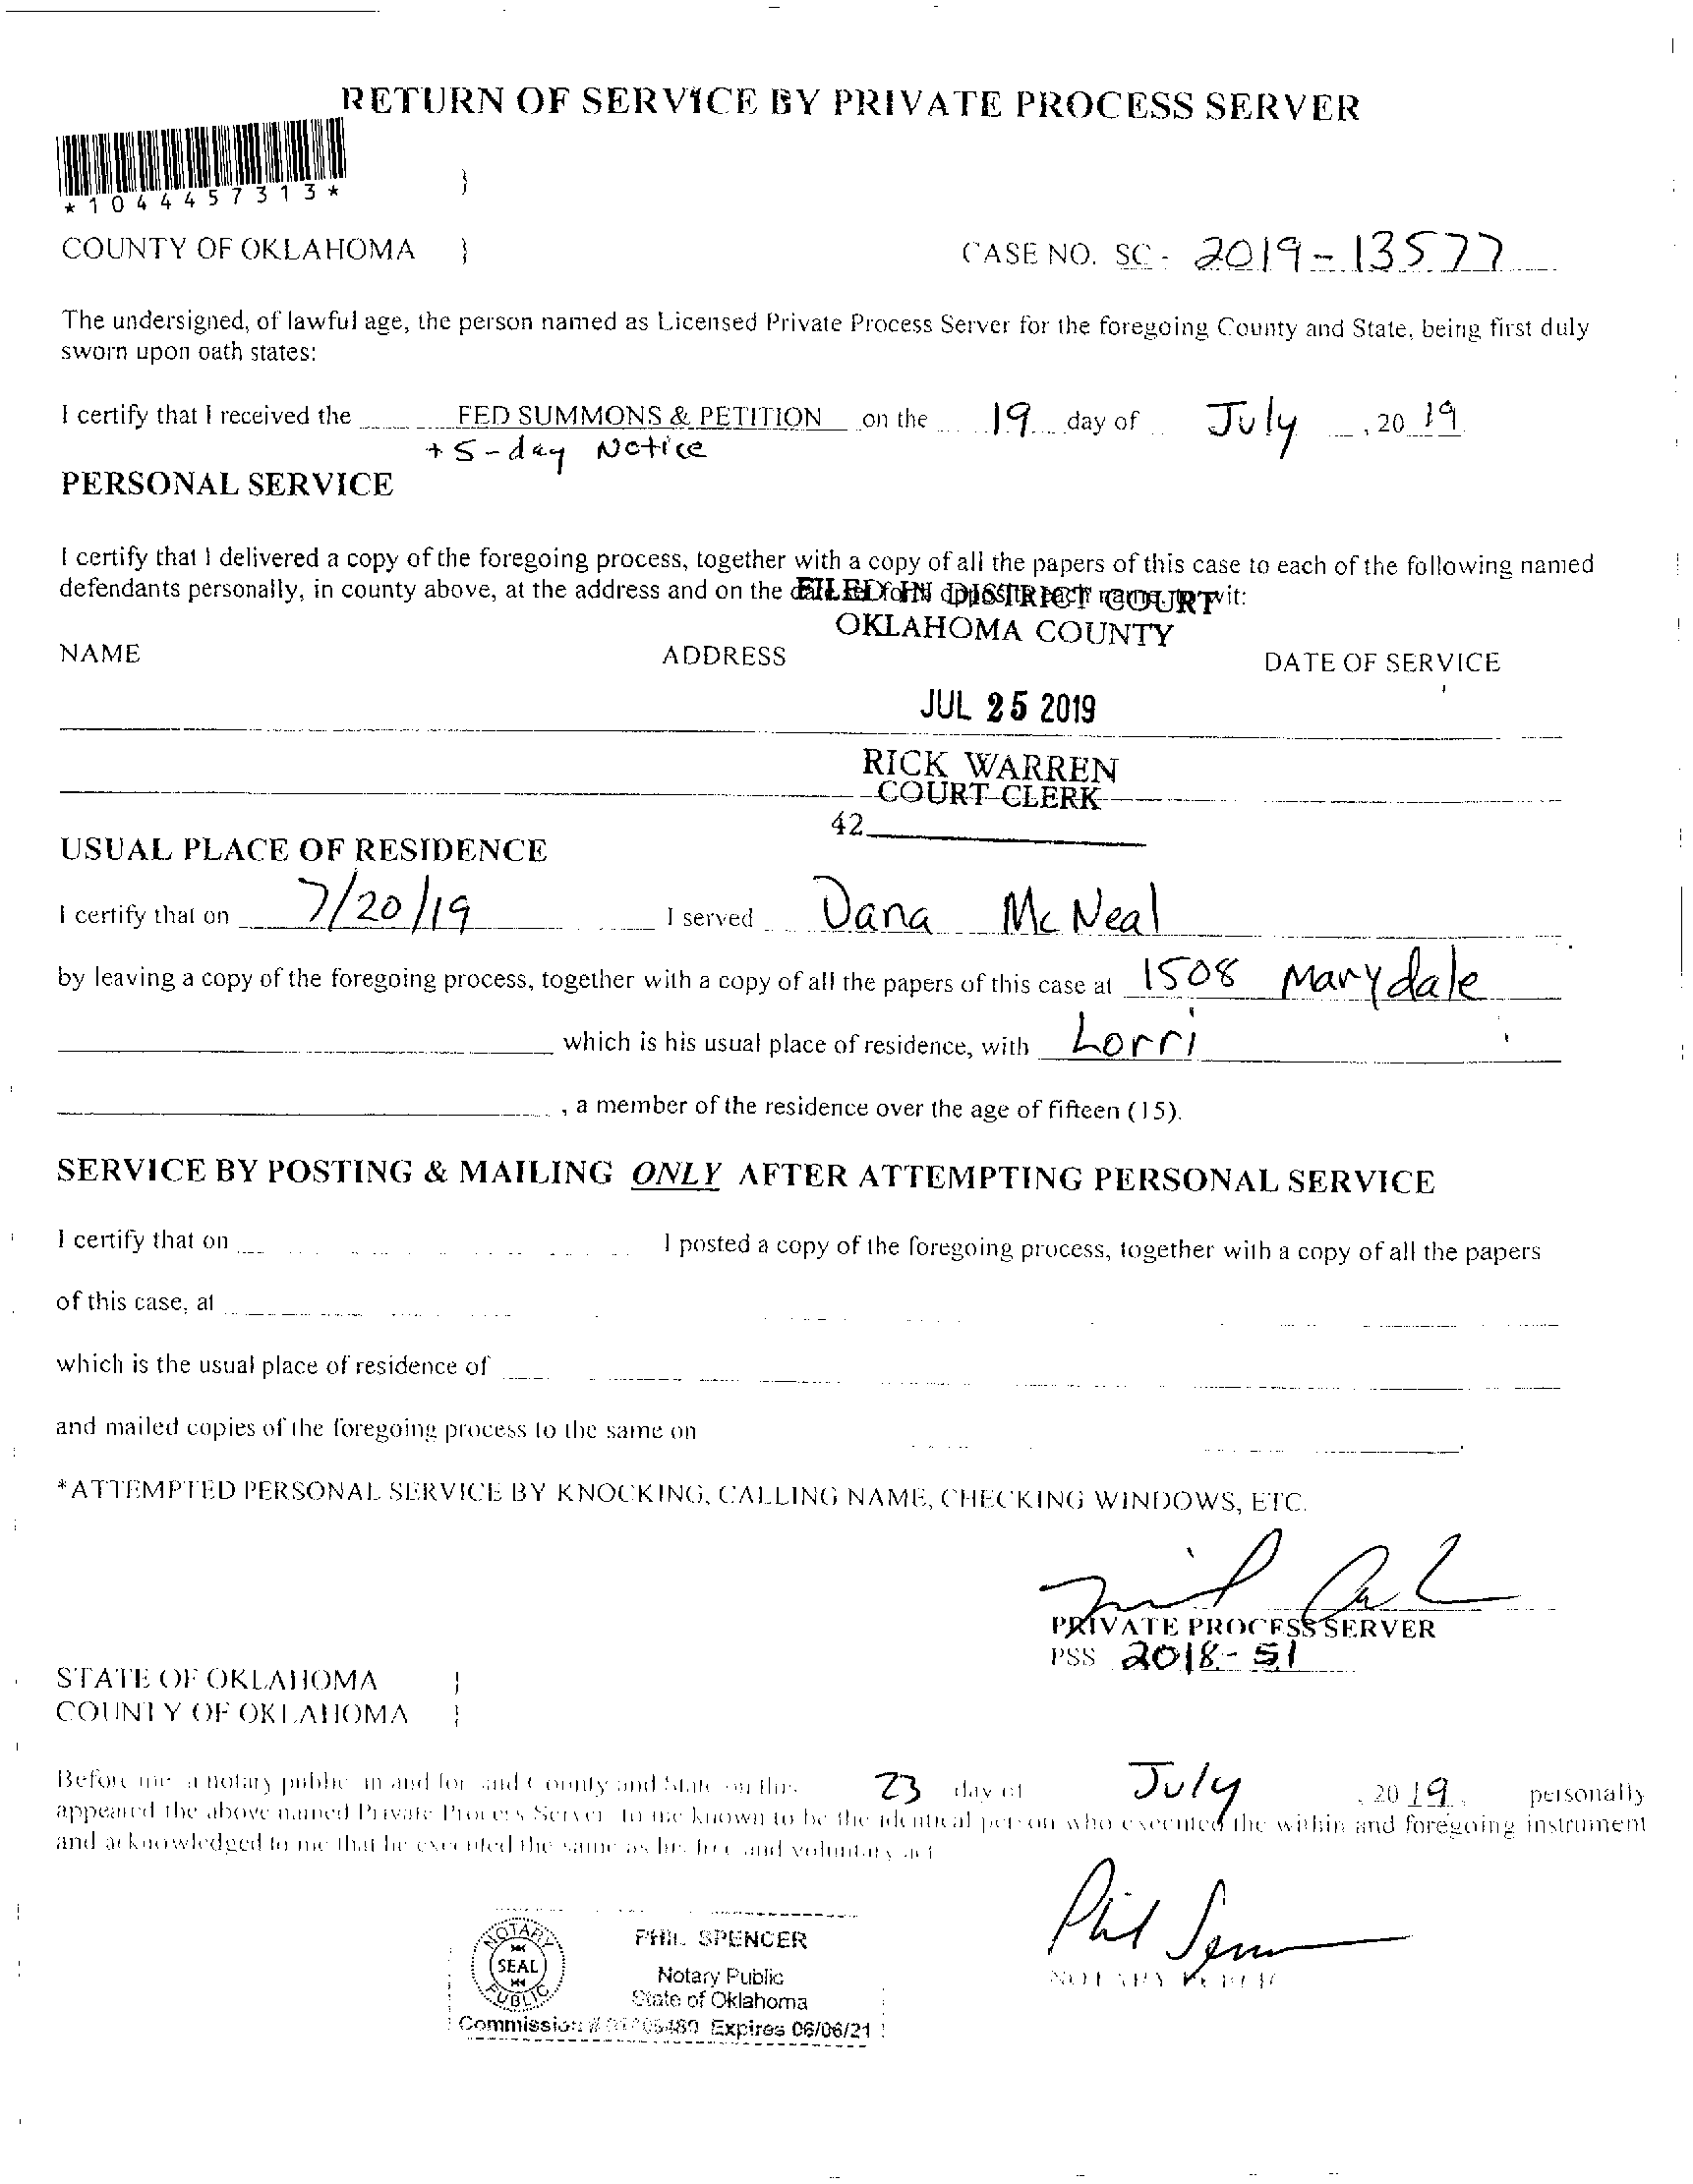 RETURN OF SERVICE BY PRIVATE PROCESS SERVER
*1044457313*
}
COUNTY OF OKLAHOMA } CASE NO. SC - 2019-13577
The undersigned, of lawful age, the person named as Licensed Private Process Server for the foregoing County and State, being first duly
sworn upon oath states:
I certify that I received the FED SUMMONS & PETITION on the 19 day of July, 20 19
+ 5-day Notice
PERSONAL SERVICE
I certify that I delivered a copy of the foregoing process, together with a copy of all the papers of this case to each of the following named
defendants personally, in county above, at the address and on the
FILED IN DISTRICT COURT
OKLAHOMA COUNTY
NAME ADDRESS DATE OF SERVICE
JUL 25 2019
RICK WARREN
COURT CLERK
42
USUAL PLACE OF RESIDENCE
I certify that on 7/20/19 I served Dana McNeal
by leaving a copy of the foregoing process, together with a copy of all the papers of this case at 1508 Marydale
which is his usual place of residence, with Lorri
, a member of the residence over the age of fifteen (15).
SERVICE BY POSTING & MAILING ONLY AFTER ATTEMPTING PERSONAL SERVICE
I certify that on I posted a copy of the foregoing process, together with a copy of all the papers
of this case, at
which is the usual place of residence of
and mailed copies of the foregoing process to the same on
*ATTEMPTED PERSONAL SERVICE BY KNOCKING, CALLING NAME, CHECKING WINDOWS, ETC.
PRIVATE PROCESS SERVER
PSS 2018-51
STATE OF OKLAHOMA }
COUNTY OF OKLAHOMA }
Before me a notary public in and for said County and State on this 23 day of July, 20 19, personally
appeared the above named Private Process Server to me known to be the identical person who executed the within and foregoing instrument
and acknowledged to me that he executed the same as his free and voluntary act
NOTARY SEAL PUBLIC
PHIL SPENCER
Notary Public
State of Oklahoma
Commission # Expires 06/06/21
NOTARY PUBLIC